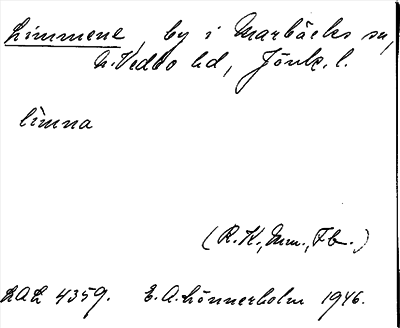 Limmene, by i Marbäcks sn,
N. Vedbo hd, Jönk. l.
limna
(R.K., Mm., Fb.)
LAL 4359. E. A. Lönnerholm 1946.